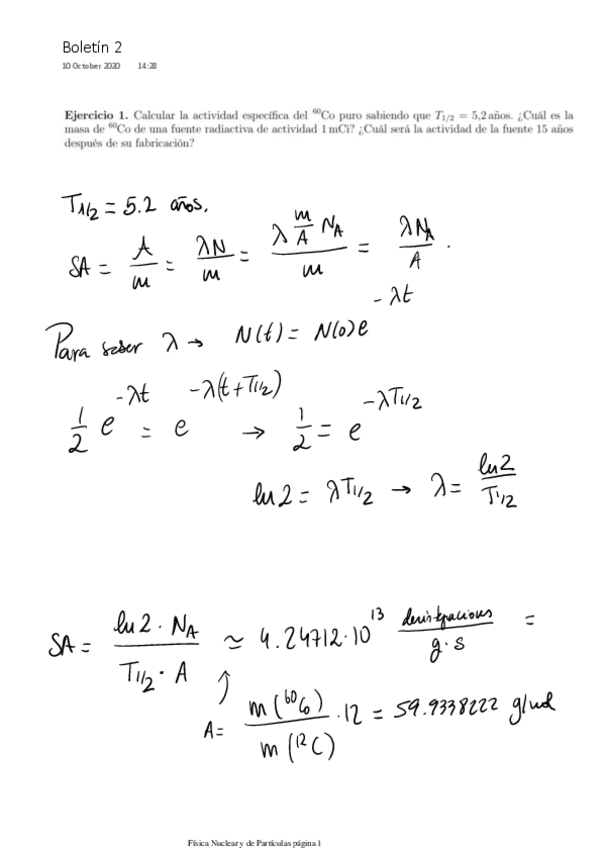 Boletín 2
10 October 2020 14:28
Ejercicio 1. Calcular la actividad específica del ⁶⁰Co puro sabiendo que T₁/₂ = 5,2 años. ¿Cuál es la
masa de ⁶⁰Co de una fuente radiactiva de actividad 1 mCi? ¿Cuál será la actividad de la fuente 15 años
después de su fabricación?
T₁/₂ = 5.2 años.
SA = A/m = λN/m = (λ (m/A) N_A)/m = λN_A/A .
Para saber λ → N(t) = N(0)e^(-λt)
1/2 e^(-λt) = e^(-λ(t+T₁/₂)) → 1/2 = e^(-λT₁/₂)
ln 2 = λT₁/₂ → λ = ln2/T₁/₂
SA = (ln 2 · N_A)/(T₁/₂ · A) ≃ 4.24712·10¹³ desintegraciones/(g·s) =
A = m(⁶⁰Co)/m(¹²C) · 12 = 59.9338222 g/mol
Física Nuclear y de Partículas página 1